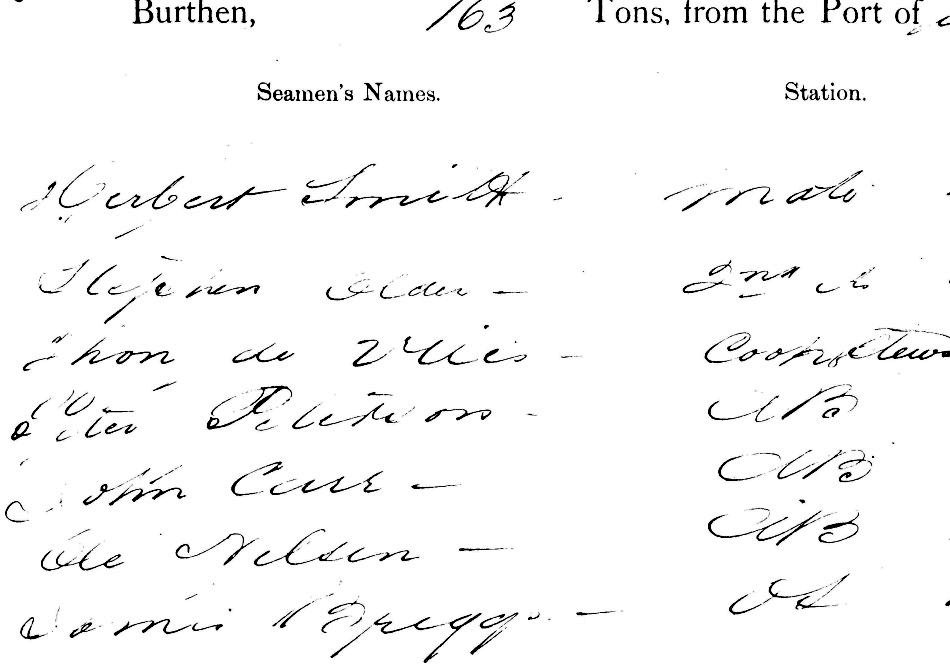 Burthen, 163 Tons, from the Port of
Seamen's Names. Station.
Herbert Smith - Mate
Stephen Older - 2nd
Thon de Vries - Cook & Stew
Peter - AB
John Carr - AB
Ole Nelsen - AB
Briggs - OS